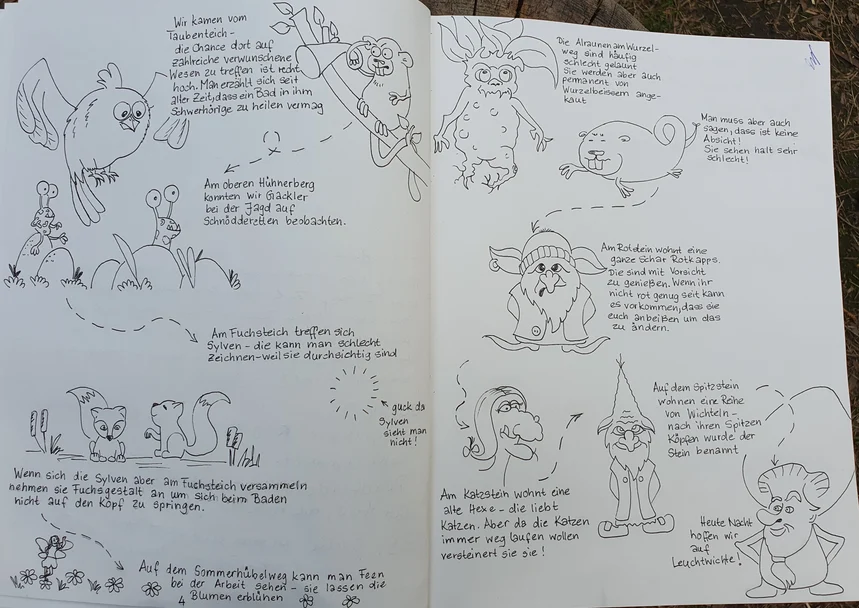 Wir kamen vom
Taubenteich -
die Chance dort auf
zahlreiche verwunschene
Wesen zu treffen ist recht
hoch. Man erzählt sich seit
aller Zeit, dass ein Bad in ihm
Schwerhörige zu heilen vermag
Am oberen Hühnerberg
konnten wir Gackler
bei der Jagd auf
Schnodderetten beobachten.
Am Fuchsteich treffen sich
Sylven - die kann man schlecht
zeichnen - weil sie durchsichtig sind
guck da
Sylven
sieht man
nicht!
Wenn sich die Sylven aber am Fuchsteich versammeln
nehmen sie Fuchsgestalt an um sich beim Baden
nicht auf den Kopf zu springen.
Auf dem Sommerhübelweg kann man Feen
bei der Arbeit sehen - sie lassen die
Blumen erblühen
4
Die Alraunen am Wurzel-
weg sind häufig
schlecht gelaunt
Sie werden aber auch
permanent von
Wurzelbeissern ange-
kaut
Man muss aber auch
sagen, dass ist keine
Absicht!
Sie sehen halt sehr
schlecht!
Am Rotstein wohnt eine
ganze Schar Rotkapps.
Die sind mit Vorsicht
zu genießen. Wenn ihr
nicht rot genug seit kann
es vorkommen, dass sie
euch anbeißen um das
zu ändern.
Auf dem Spitzstein
wohnen eine Reihe
von Wichteln -
nach ihren Spitzen
Köpfen wurde der
Stein benannt
Am Katzstein wohnt eine
alte Hexe - die liebt
Katzen. Aber da die Katzen
immer weg laufen wollen
versteinert sie sie!
Heute Nacht
hoffen wir
auf
Leuchtwichte!